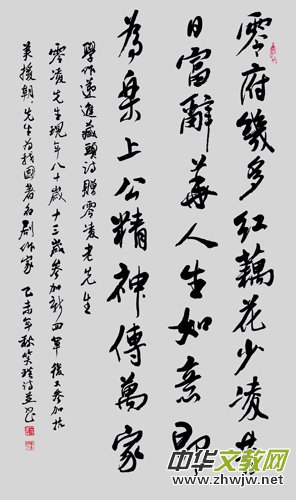 零府幾多紅藕花少凌昔
日富辭華人生如意即
為樂上公精神傳萬家
學作遞進藏頭詩贈零凌老先生
零凌先生現年八十歲十三歲參加新四軍後又參加抗
美援朝先生為我國著名劇作家 乙未年秋笑 詩並書
中华文教网
www.zhwjw.net